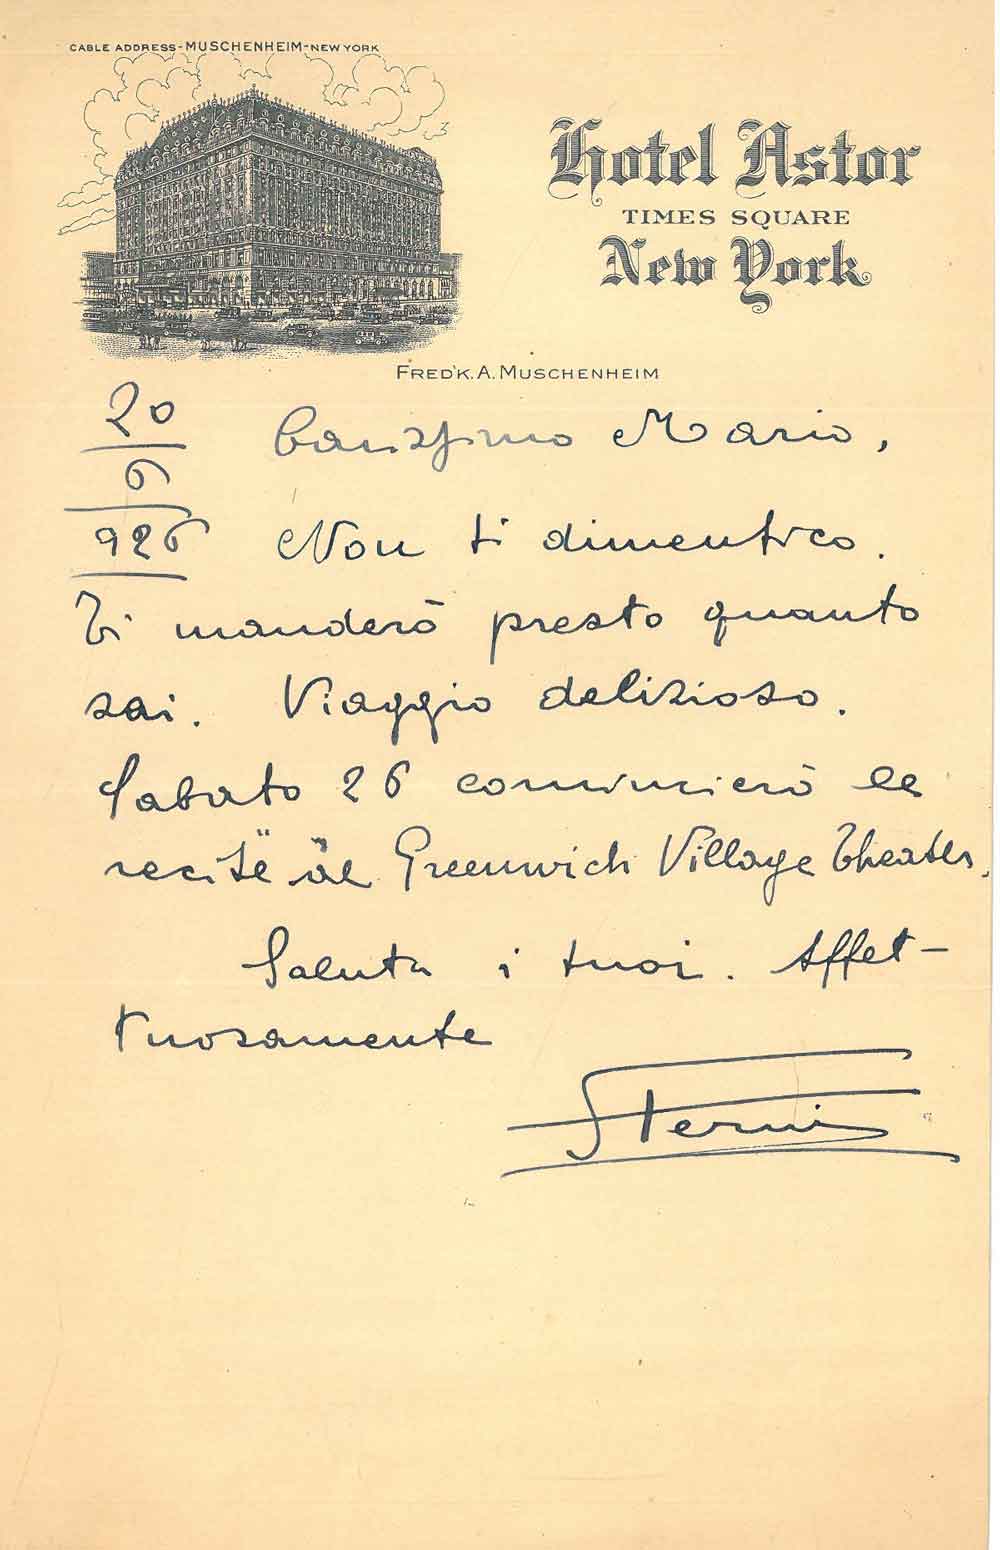 CABLE ADDRESS-MUSCHENHEIM-NEW YORK
Hotel Astor
TIMES SQUARE
New York
FRED'K. A. MUSCHENHEIM
20
6
926
Carissimo Mario,
Non ti dimentico.
Ti manderò presto quanto
sai. Viaggio delizioso.
Sabato 26 comincierò le
recite al Greenwich Village Theater.
Saluta i tuoi. Affet-
tuosamente
Sterni